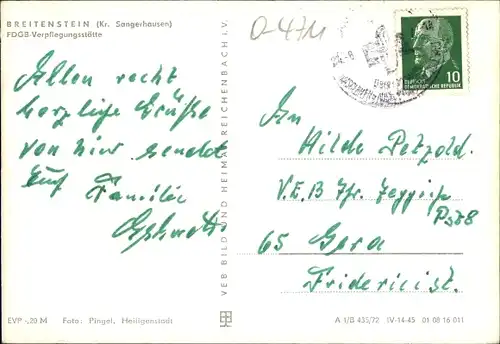 BREITENSTEIN (Kr. Sangerhausen)
FDGB-Verpflegungsstätte
O-4711
DEUTSCHE
DEMOKRATISCHE REPUBLIK
10
Allen recht
herzliche Grüße
von hier sendet
Euch Familie
An
Hilde Petzold.
V.E.B
65 Gera
VEB BILD UND HEIMAT REICHENBACH i. V.
EVP -,20 M Foto: Pingel, Heiligenstadt
A 1/B 435/72 IV-14-45 01 08 16 011